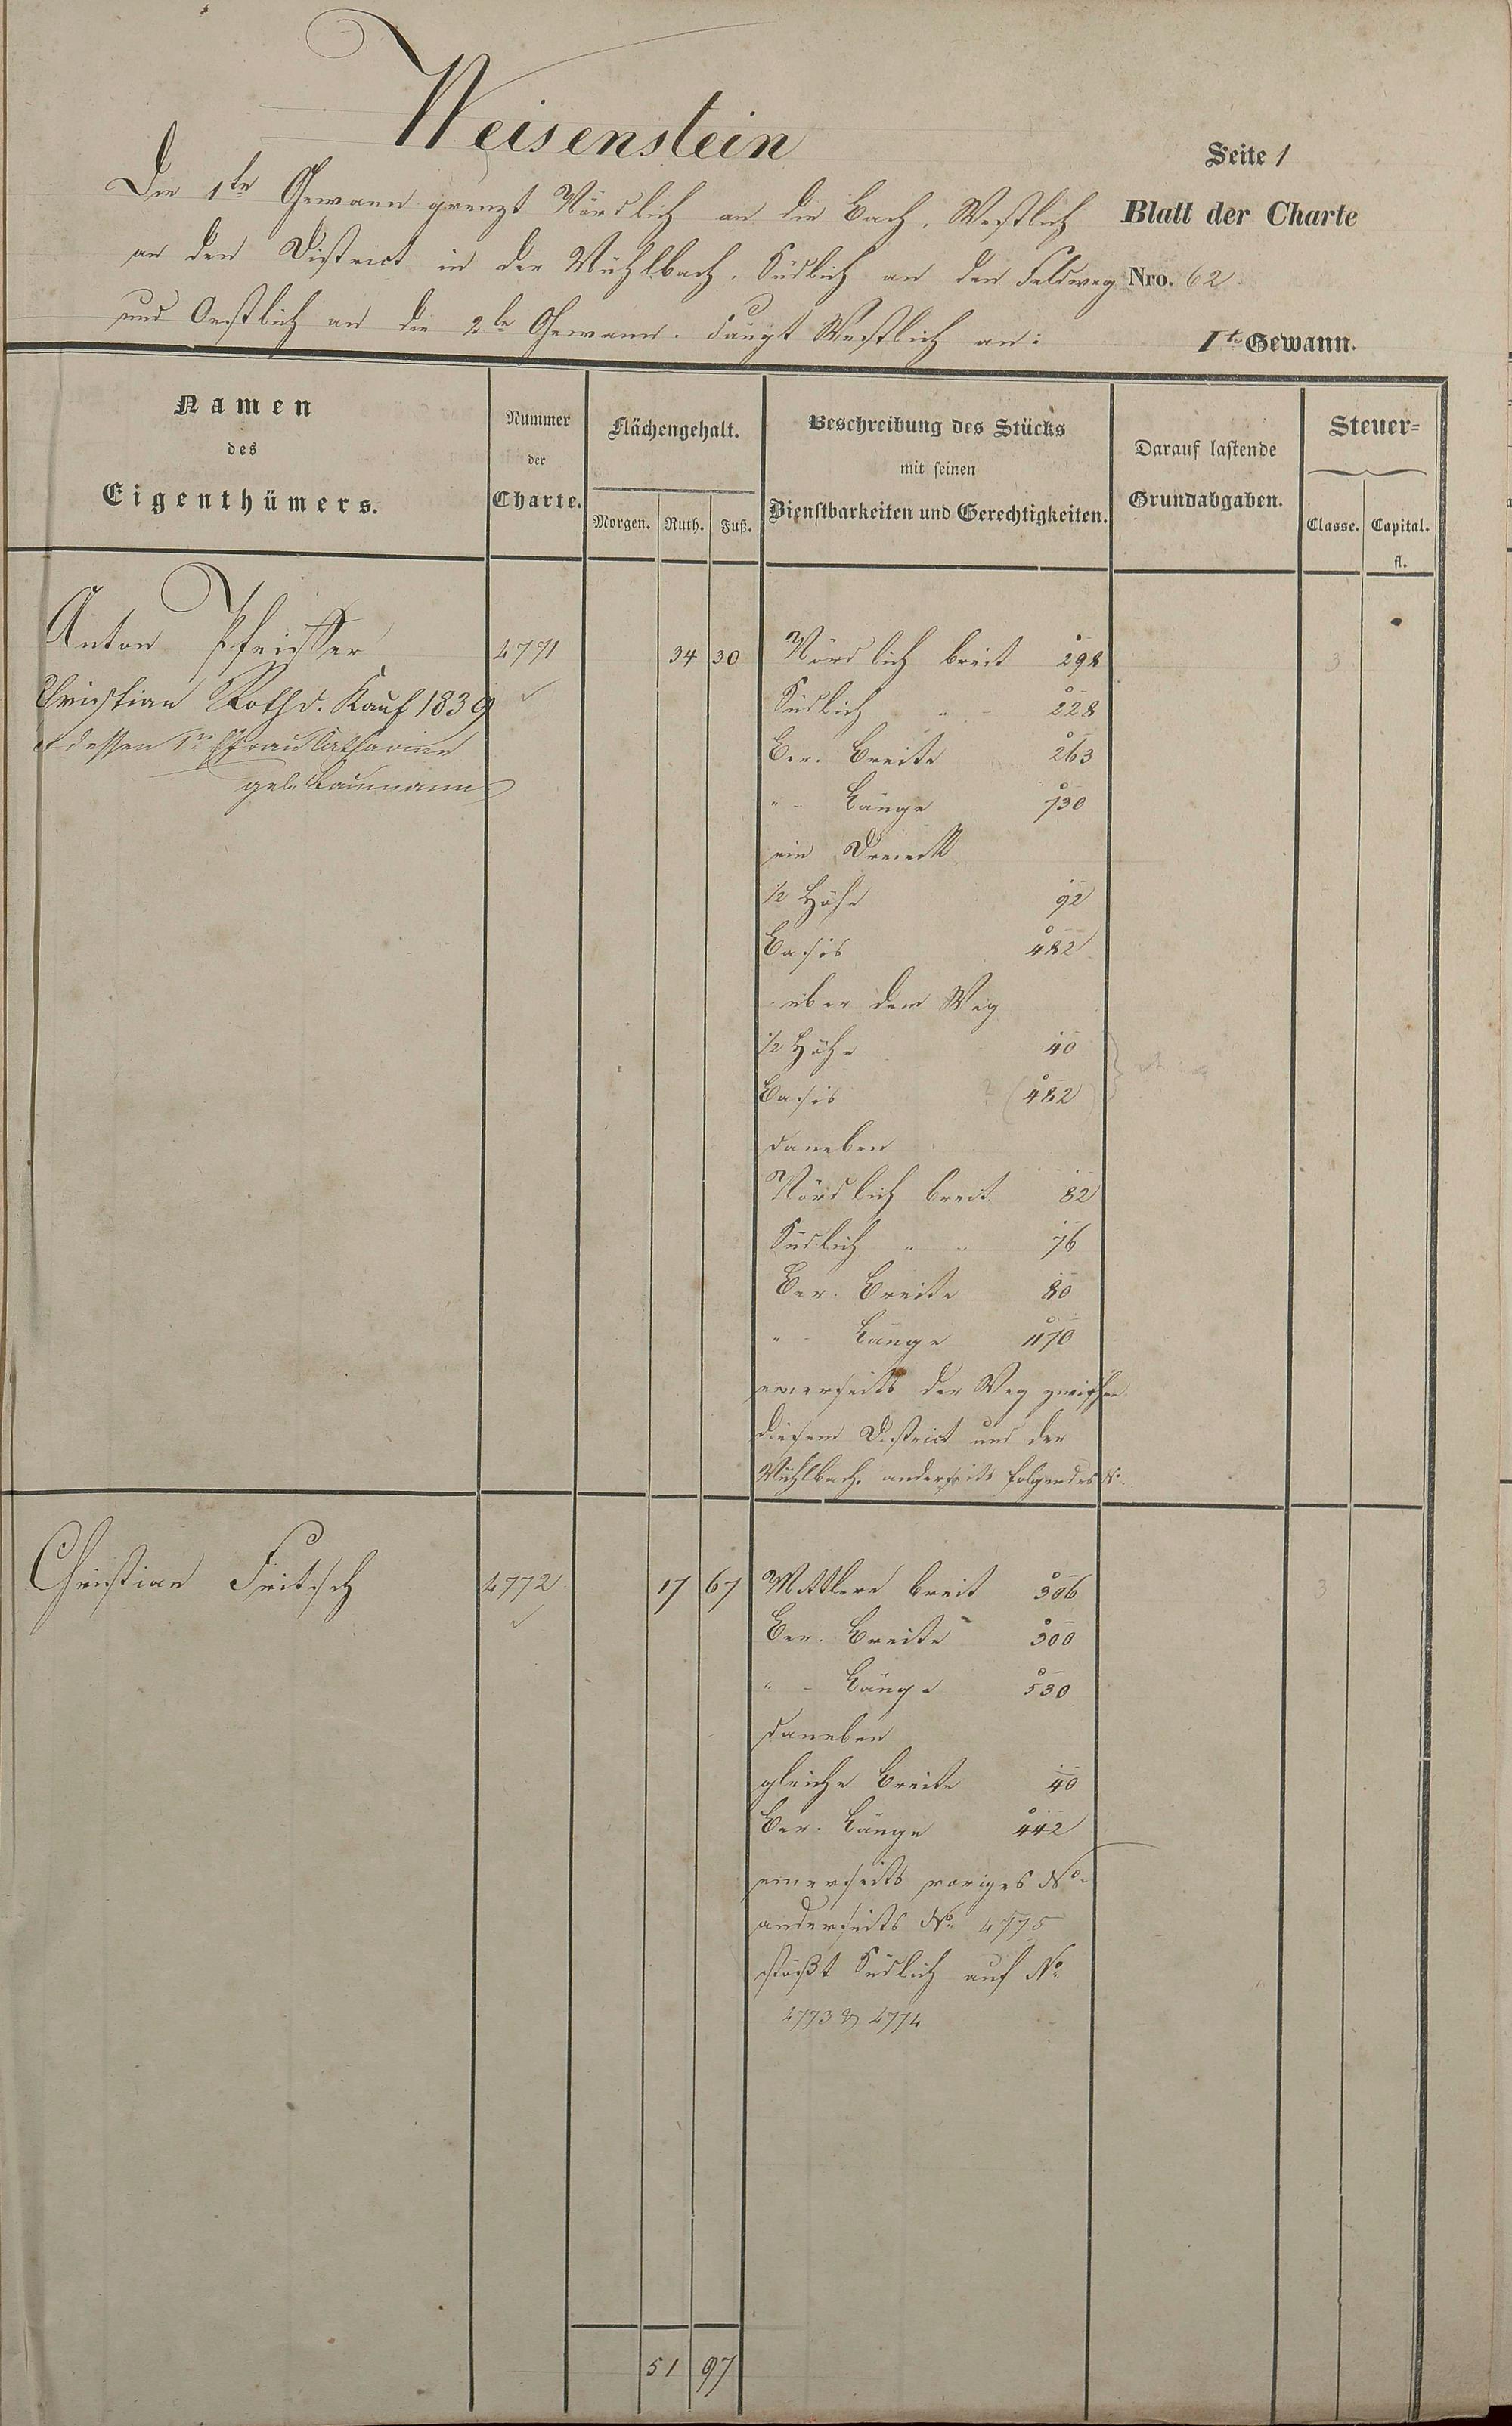 Weisenstein
Seite 1
Die 1te Gewann grenzt Nördlich an die Bach, Westlich
Blatt der Charte
an den District in der Mühlbach, Südlich an den Feldweg
Nro. 62
und Oestlich an die 2te Gewann. Fängt Westlich an:
Ite Gewann.
Namen
des
Eigenthümers.
Nummer
der
Charte.
Flächengehalt.
Morgen. Ruth. Fuß.
Beschreibung des Stücks
mit seinen
Dienstbarkeiten und Gerechtigkeiten.
Darauf lastende
Grundabgaben.
Steuer-
Classe. Capital.
fl.
Anton Pfeiffer 4771 34 30 Nördlich breit 298 3
Christian Roth d. Kauf 1839 Südlich " - 228
et dessen 1te Ehfrau Catharine Ber. Breite 263
geb. Baumann " - Länge 730
ein Dreieck
1/2 Höhe 92
Basis 482
über dem Weg
1/2 Höhe 40
Basis ? (482)
daneben
Nördlich breit 82
Südlich " - " 76
Ber. Breite 80
" - Länge 1170
einerseits der Weg zwischen
diesem District und der
Mühlbach, anderseits folgendes No.
Christian Fritsch 4772 17 67 Mittlere breit 306 3
Ber. Breite 300
" - Länge 530
daneben
gleiche Breite 40
Ber. Länge 442
einerseits voriges No.
anderseits No. 4775
stößt Südlich auf No.
4773 & 4774
51 97